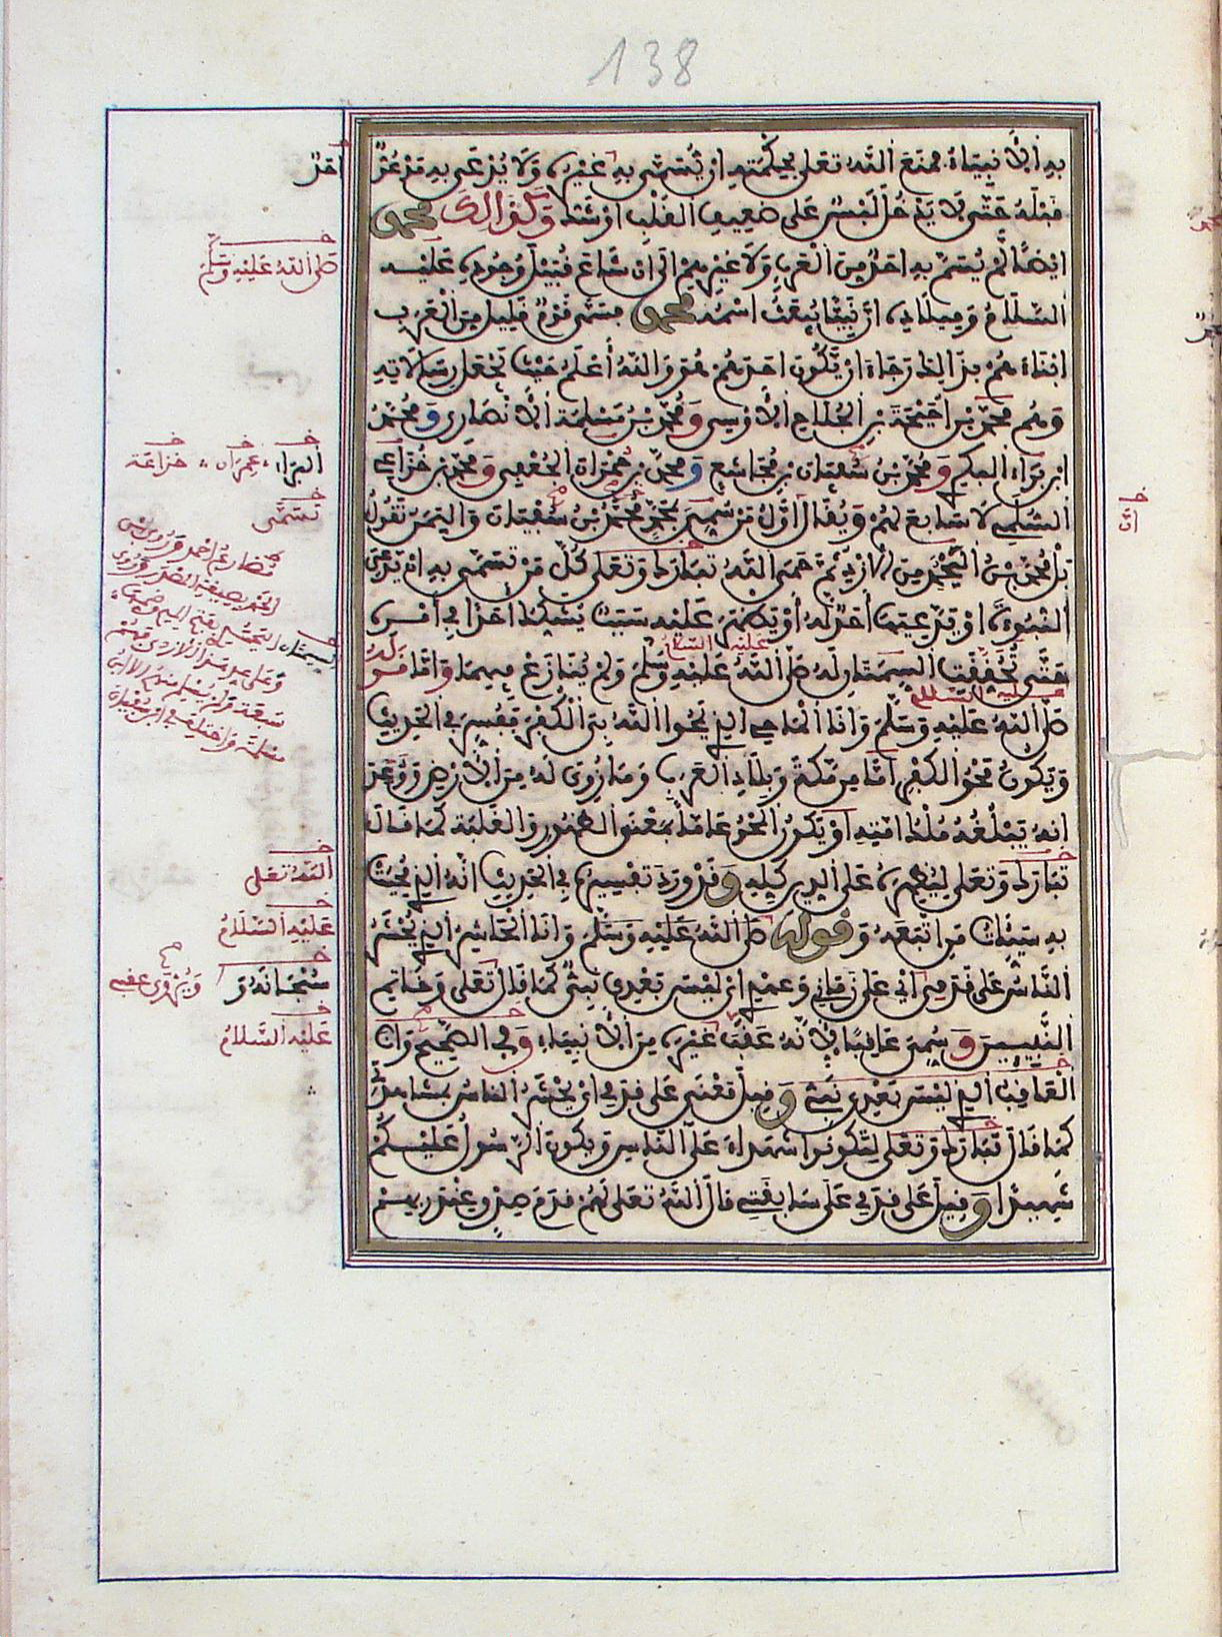 138
به الأنبياء فمنع الله تعلى بحكمته ان يسمى به غيره ولا يدعى به مدعو
قبله حتى لا يدخل لبس على ضعيف القلب او شك وكذالك محمد
ايضا لم يسم به احد من العرب ولا غيرهم الى ان شاع قبيل وجوده عليه
السلام وميلاده ان نبيا يبعث اسمه محمد فسمى قوم قليل من العرب
ابناءهم بذالك رجاء ان يكون احدهم هو والله أعلم حيث يجعل رسالاته
وهم محمد بن احيحة بن الجلاح الأوسي ومحمد بن مسلمة الأنصاري ومحمد
ابن براء البكري ومحمد بن سفيان بن مجاشع ومحمد بن حمران الجعفي ومحمد بن خزاعي
السلمي لا سابع لهم ويقال اول من سمي بمحمد محمد بن سفيان واليمن تقول
بل محمد بن اليحمد من الازد ثم حمى الله تبارك وتعلى كل من تسمى به ان يدعي
النبوءة او يدعيها احد له او يظهر عليه سبب يشكك احدا في أمره
حتى تحققت السمتان له صلى الله عليه وسلم ولم ينازع فيهما واما قوله
عليه السلام
صلى الله عليه وسلم وانا الماحي الذي يمحوا الله بي الكفر ففسر في الحديث
ويكون محو الكفر اما من مكة وبلاد العرب وما زوي له من الأرض ووعد
انه يبلغه ملك امته او يكون المحو عاما بمعنى الظهور والغلبة كما قال
تبارك وتعلى ليظهره على الدين كله وقد ورد تفسيره في الحديث انه الذي محيت
به سيئات من اتبعه وقوله صلى الله عليه وسلم وانا الحاشر الذي يحشر
الناس على قدمي اي على زماني وعهدي اي ليس بعدي نبي كما قال تعلى وخاتم
النبيين وسمي عاقبا لأنه عقب غيره من الأنبياء وفي الصحيح وانا
العاقب الذي ليس بعدي نبي وقيل معنى على قدمي اي يحشر الناس بمشاهدتي
كما قال تبارك وتعلى لتكونوا شهداء على الناس ويكون الرسول عليكم
شهيدا وقيل على قدمي على سابقتي قال الله تعلى لهم قدم صدق عند ربهم
احد
صلى الله عليه وسلم
البراء عمران خزاعة
تسمى
السيمتان
الله تعلى
عليه السلام
سبحانه و
ويروى عقبي
عليه السلام
ان